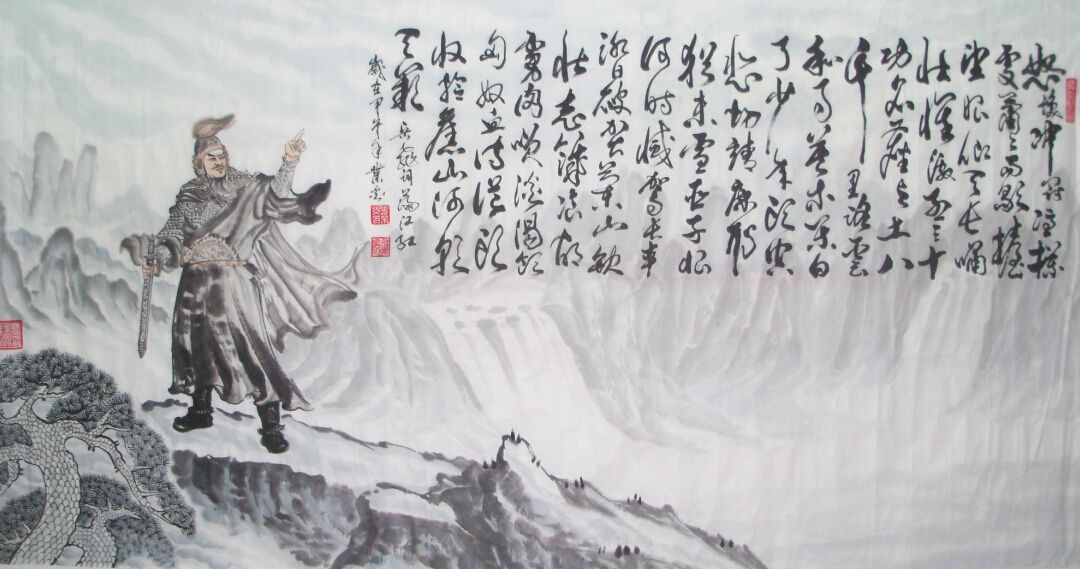 怒髮冲冠凭栏
处萧々雨歇抬
望眼仰天长嘯
壮怀激烈三十
功名尘与土八
千里路雲
和月莫等闲白
了少年头空
悲切靖康耻
犹未雪臣子恨
何时滅驾长車
踏破贺兰山缺
壮志饥餐胡
虏肉笑谈渴饮
匈奴血待从头
收拾舊山河朝
天阙
岳飛詞滿江紅
歲在甲午年